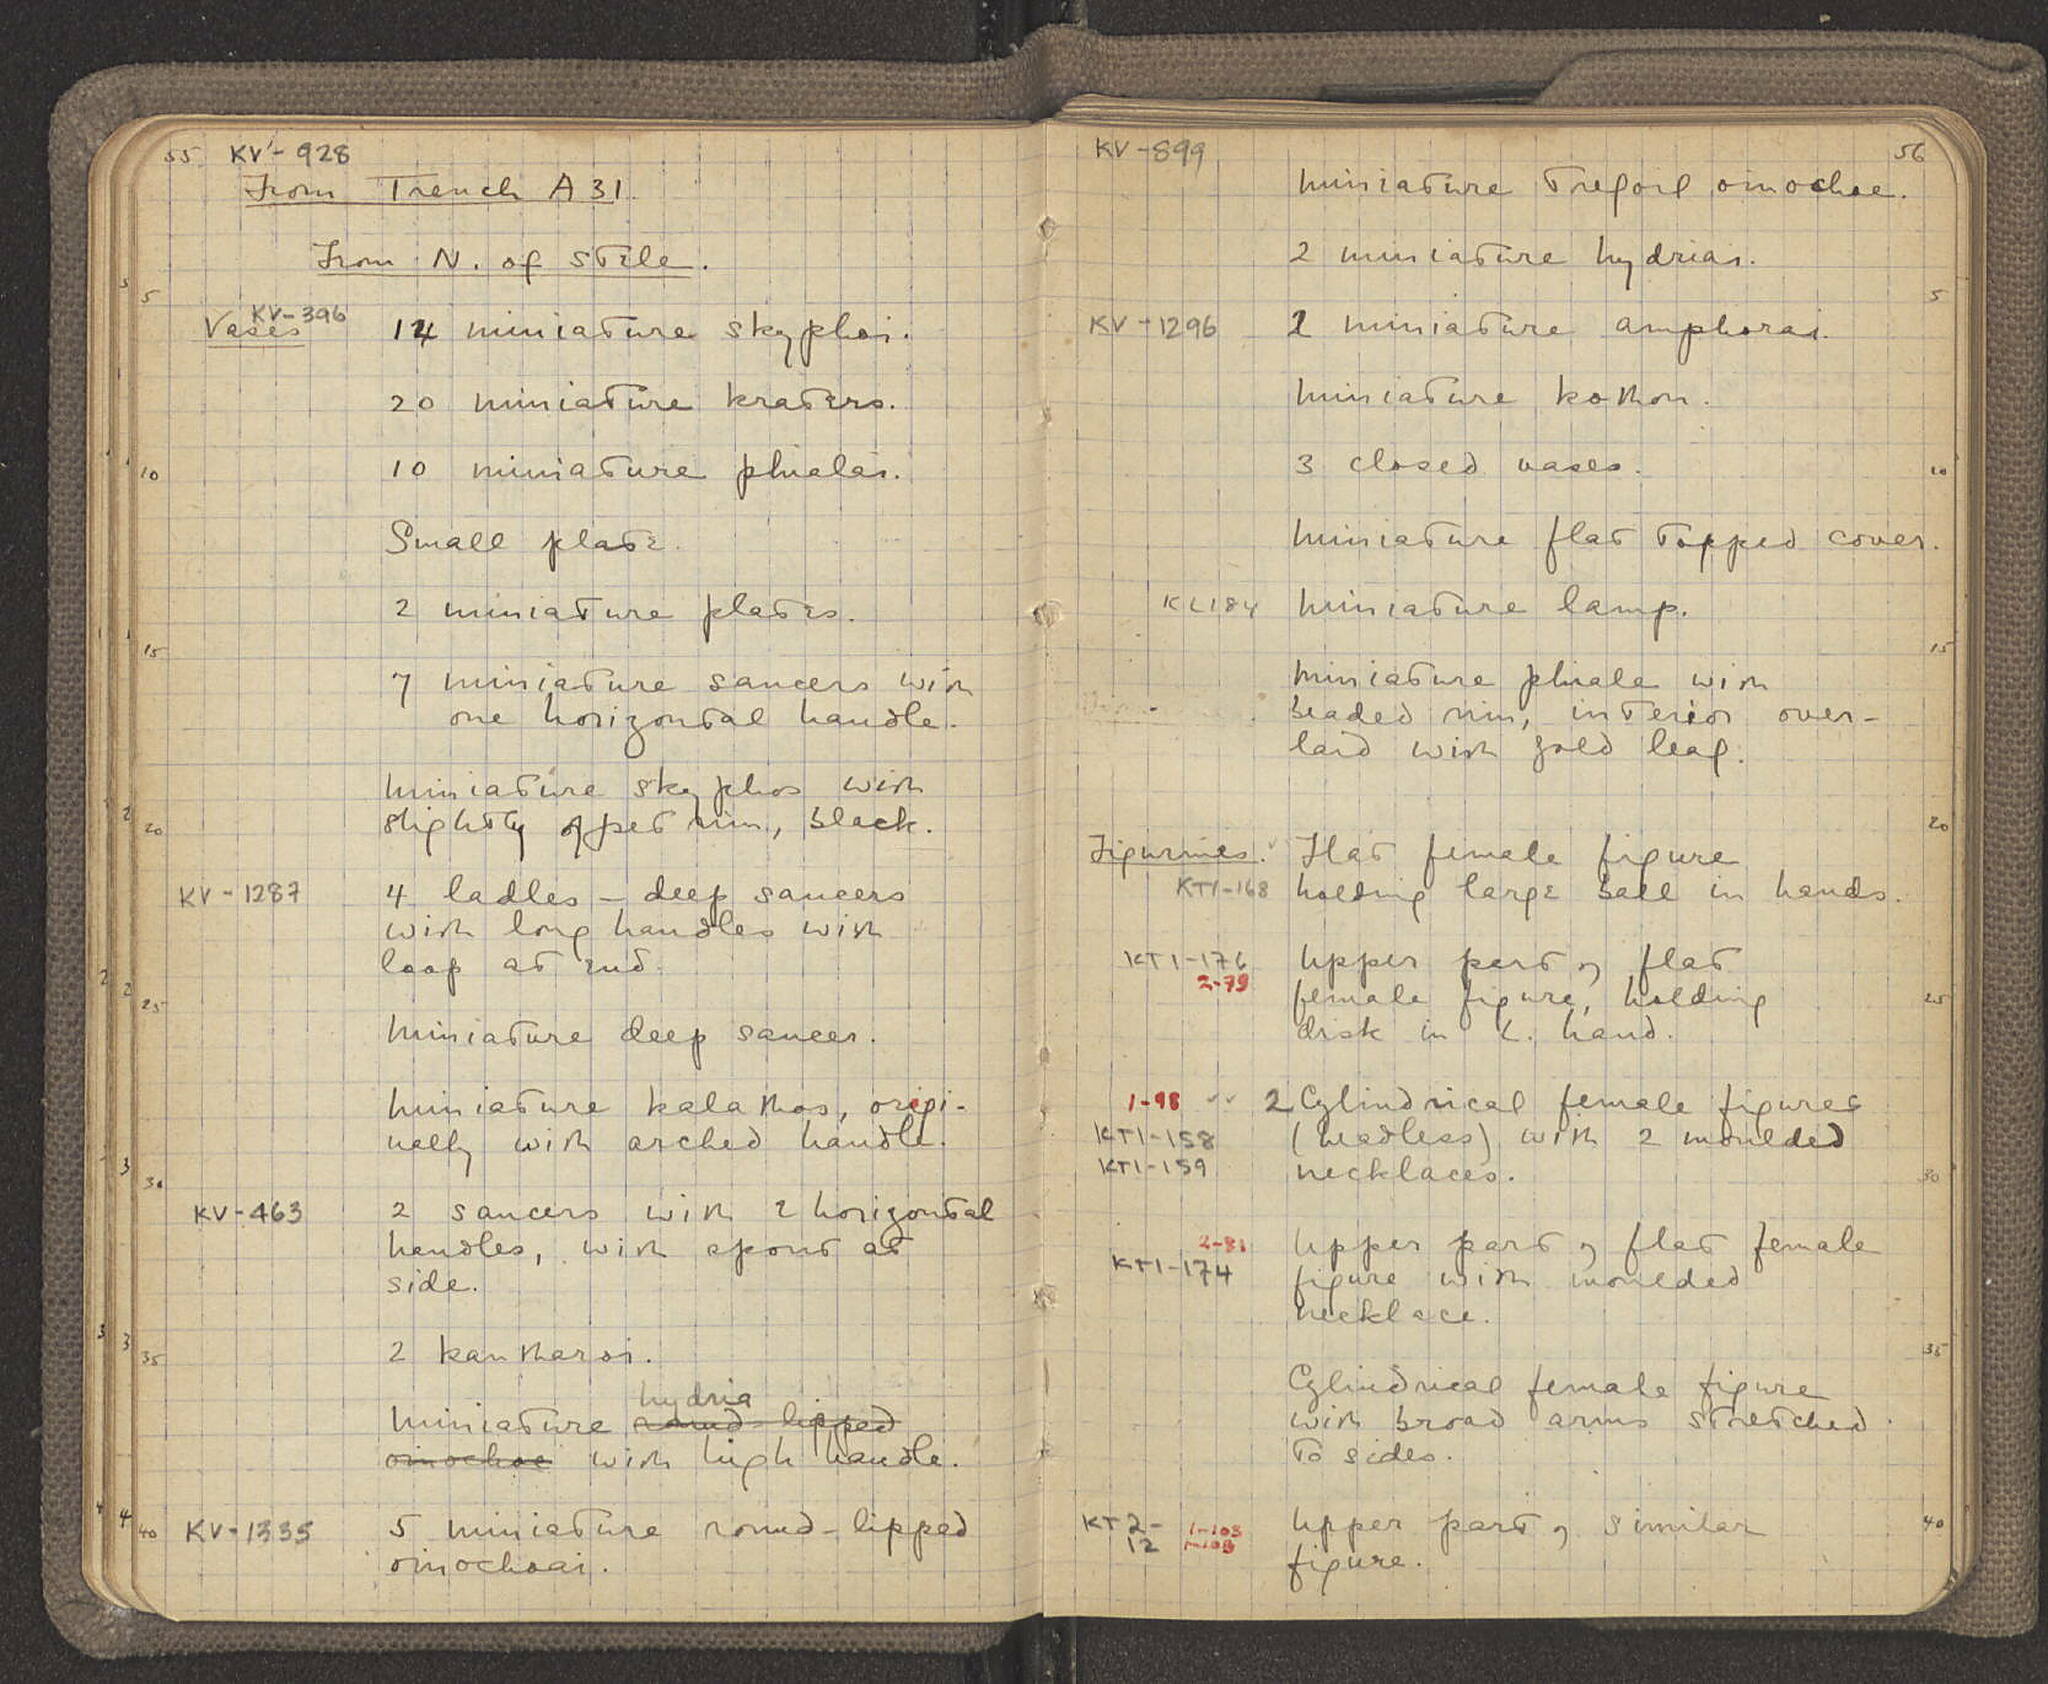 55 KV-928
From Trench A 31.
From N. of stele.
KV-396
Vases 14 miniature skyphoi.
20 miniature kraters.
10 miniature phialai.
Small plate.
2 miniature plates.
7 miniature saucers with
one horizontal handle.
Miniature skyphos with
slightly offset rim, black.
KV-1287 4 ladles - deep saucers
with long handles with
loop at end.
Miniature deep saucer.
Miniature kalathos, origi-
nally with arched handle.
KV-463 2 saucers with 2 horizontal
handles, with spout at
side.
2 kantharoi.
hydria
Miniature round-lipped
oinochoe with high handle.
KV-1335 5 miniature round-lipped
oinochoai.
5
10
15
20
25
30
35
40
KV-899 56
Miniature trefoil oinochoe.
2 miniature hydriai.
KV-1296 2 miniature amphorai.
Miniature kothon.
3 closed vases.
Miniature flat topped cover.
KL184 Miniature lamp.
Miniature phiale with
beaded rim, interior over-
laid with gold leaf.
Figurines. Flat female figure
KT1-168 holding large ball in hands.
KT1-176 Upper part of flat
2-79 female figure, holding
disk in L. hand.
1-98 2 Cylindrical female figures
KT1-158 (headless) with 2 moulded
KT1-159 necklaces.
2-81 Upper part of flat female
KT1-174 figure with moulded
necklace.
Cylindrical female figure
with broad arms stretched
to sides.
KT2- 1-103 Upper part of similar
12 figure.
5
10
15
20
25
30
35
40